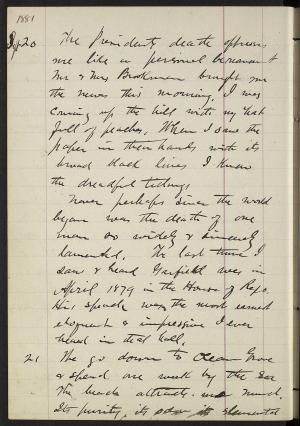 1881
Sep 20 The President's death oppresses
me like a personal bereavement
Mr & Mrs Brookman brought me
the news this morning. I was
coming up the hill with my hat
full of peaches. When I saw the
paper in their hands with its
broad black lines I knew
the dreadful tidings
Never perhaps since the world
began was the death of one
man so widely & sincerely
lamented. The last time I
saw & heard Garfield was in
April 1879 in the House of Reps.
His speech was the most earnest
eloquent & impressive I ever
heard in that hall.
21 We go down to Ocean Grove
& spend one week by the sea
The beach attracts me much.
Its purity, its elemental